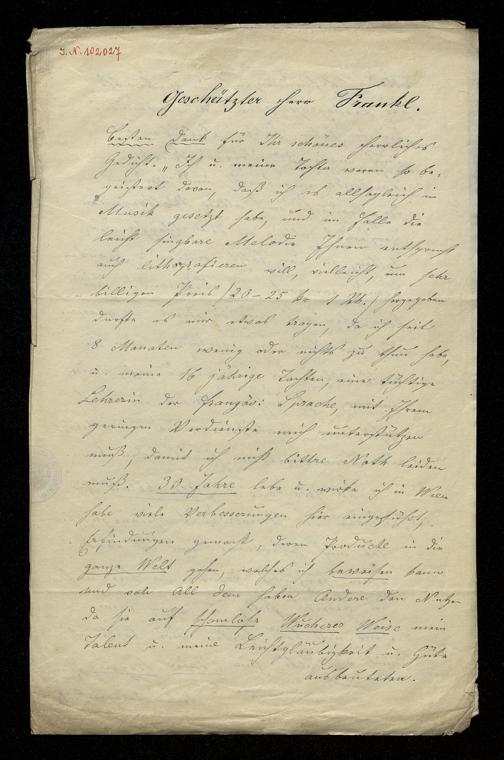 I.N. 102027
Geschätzter Herr Frankl.
Besten Dank für Ihr schönes herrliches
Gedicht. Ich u. meine Tochter waren so be-
geistert davon, daß ich es allsogleich in
Musik gesetzt habe, und im Falle die
leicht singbare Melodie Ihnen entspricht
auch lithografieren will, vielleicht, um sehr
billigen Preis (20-25 Kr. hergegeben
dürfte es mir etwas tragen, da ich seit
8 Monaten wenig oder nichts zu thun habe,
u. meine 16 jährige Tochter, eine tüchtige
Lehrerin der französ: Sprache, mit Ihrem
geringen Verdienste mich unterstützen
muß, damit ich nicht bittre Noth leiden
muß. 33 Jahre lebe u. wirke ich in Wien
habe viele Verbesserungen hier eingeführt,
Erfindungen gemacht, deren Producte in die
ganze Welt gehen, welches ich beweisen kann
und von all dem haben Andere den Nutzen
da sie auf schamlose Wucherer Weise mein
Talent u. meine Leichtgläubigkeit u. Güte
ausbeuteten.